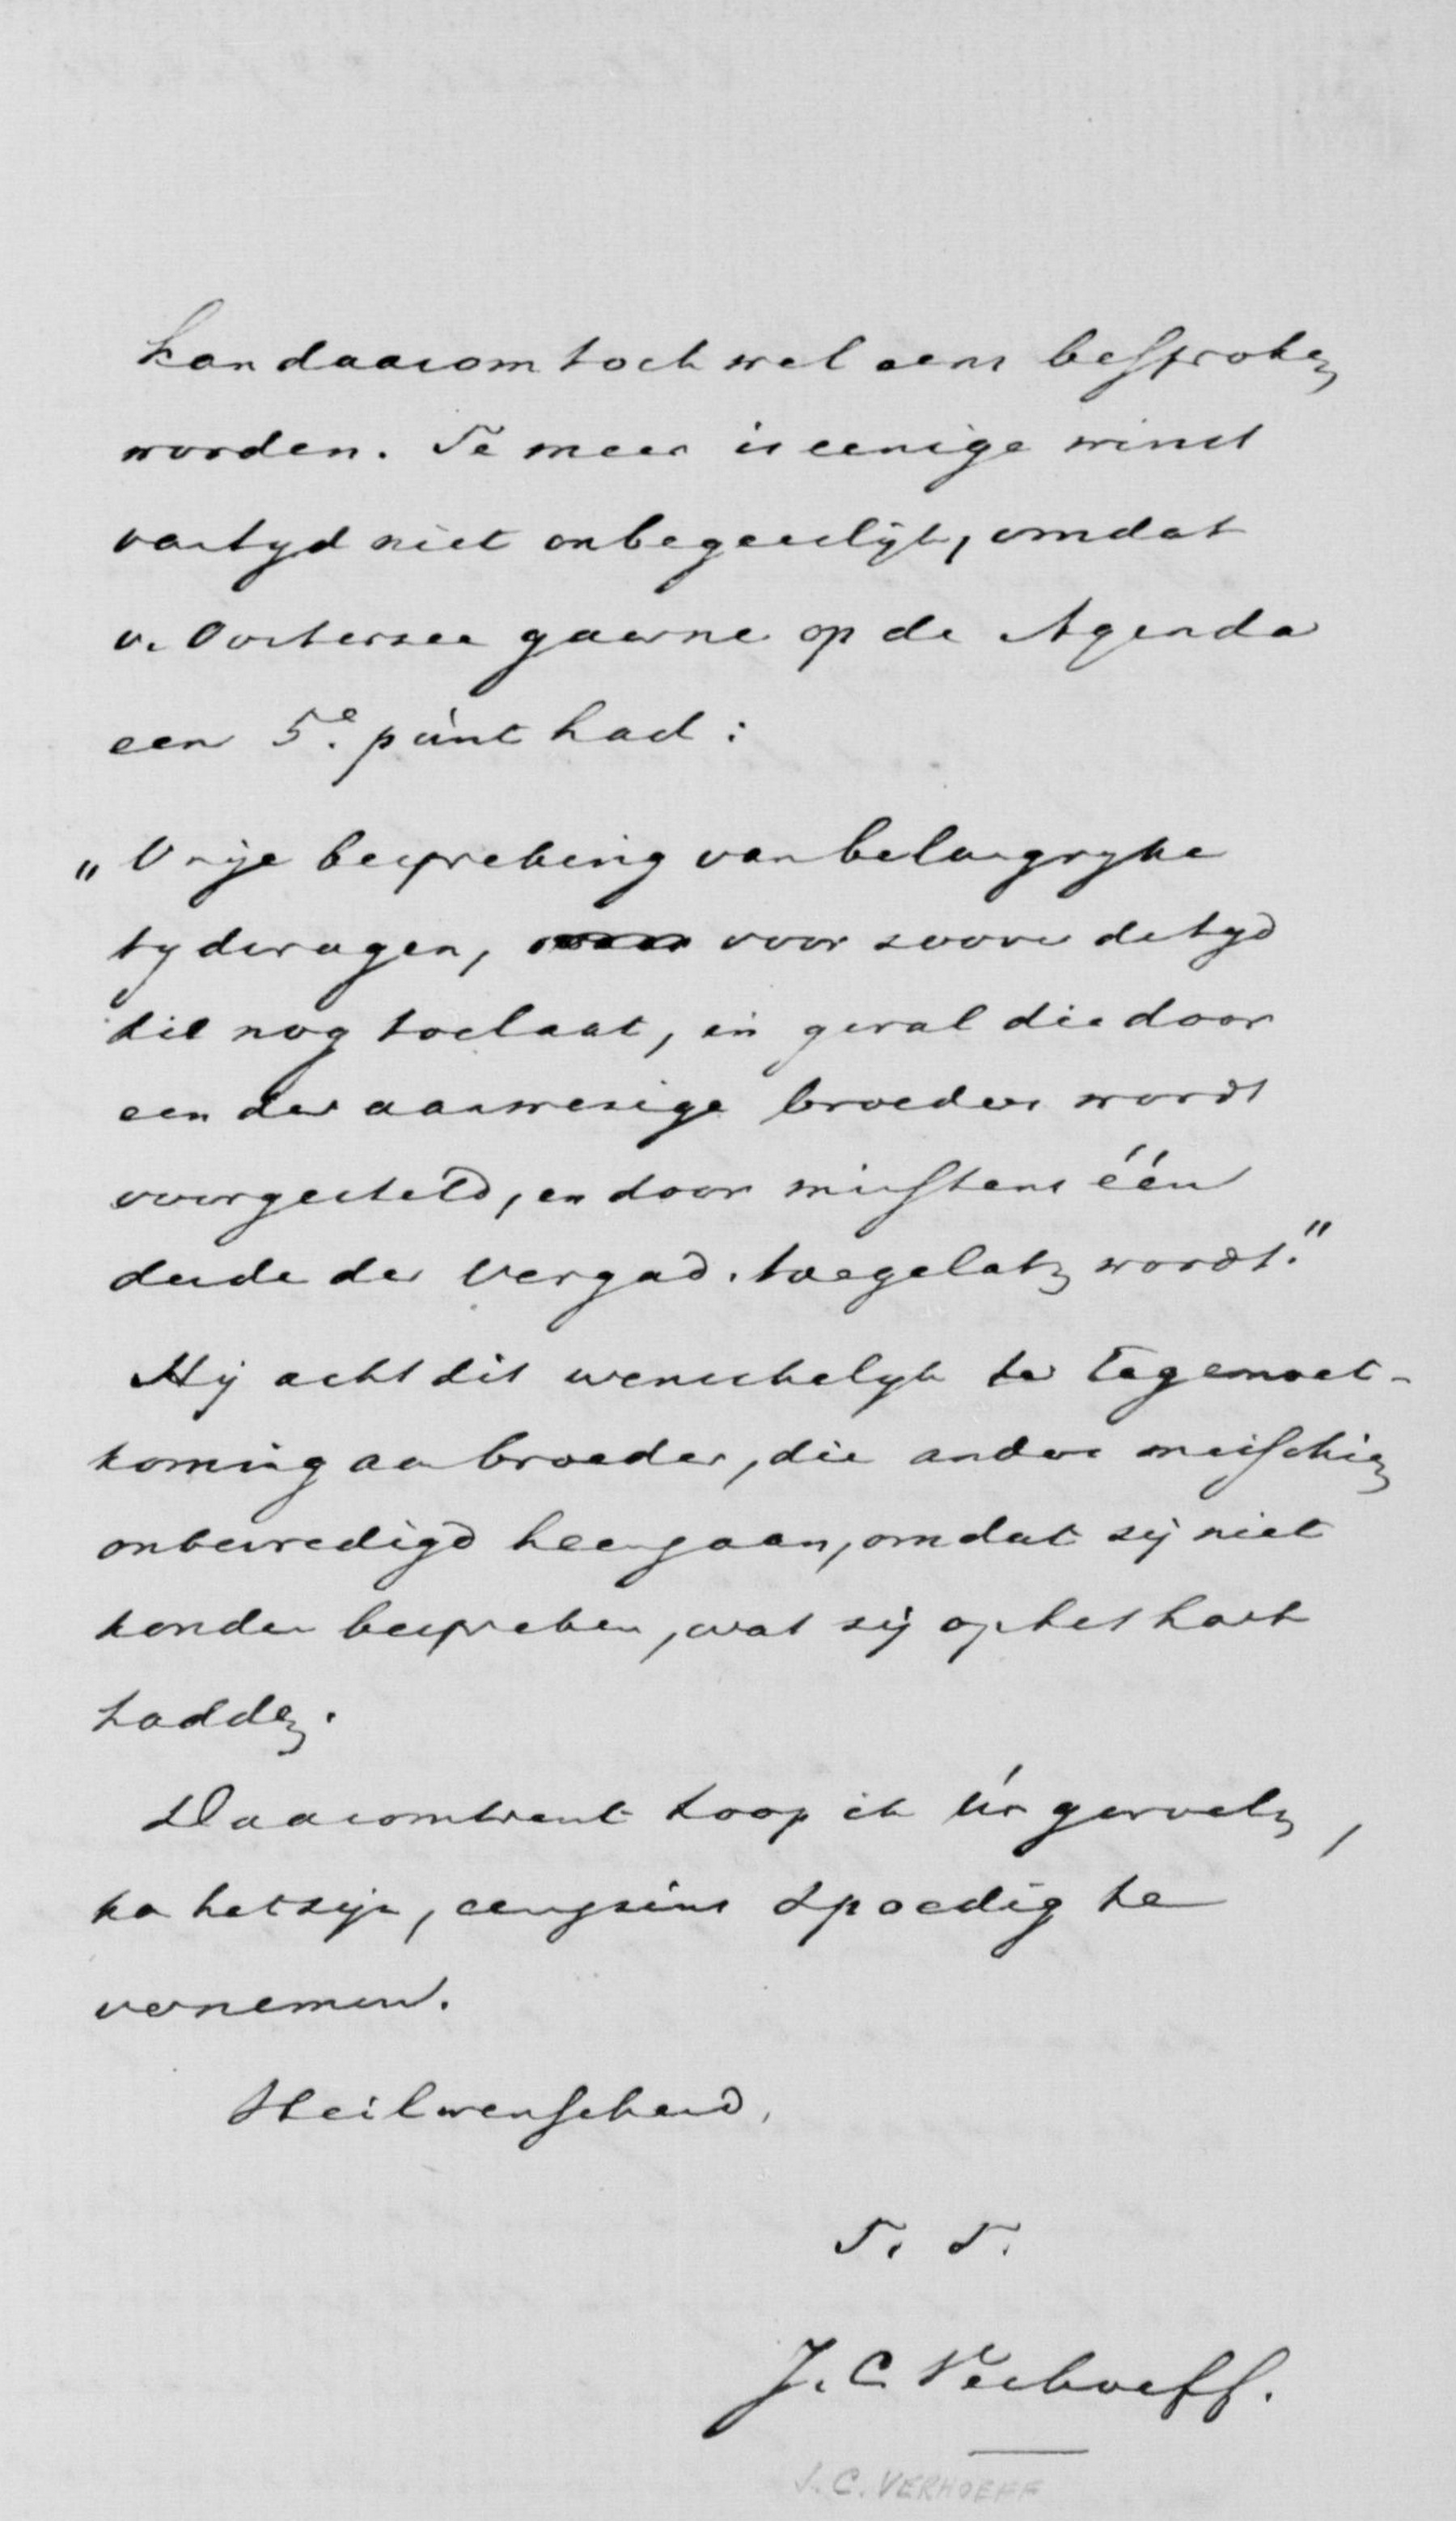 kan daarom toch wel eens besproken
worden. Te meer is eenige winst
van tyd niet onbegeerlijk, omdat
v. Oosterzee gaarne op de Agenda
een 5e. punt had:
„Vrije bespreking van belangryke
tydvragen, voor zoover de tyd
dit nog toelaat, in geval die door
een der aanwezige broeders wordt
voorgesteld, en door minstens één
derde der Vergad. toegelaten wordt."
Hij acht dit wenschelyk ter tegemoet-
koming aan broeders, die anders misschien
onbevredigd heengaan, omdat zij niet
konden bespreken, wat zij op het hart
hadden.
Daaromtrent hoop ik Uw gevoelen,
kan het zijn, eenigzins spoedig te
vernemen.
Heilwenschend,
T. T.
J. C. Verhoeff.
J. C. VERHOEFF